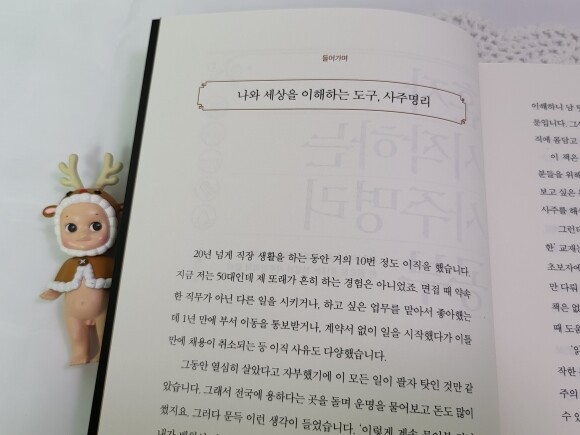 들어가며
나와 세상을 이해하는 도구, 사주명리
20년 넘게 직장 생활을 하는 동안 거의 10번 정도 이직을 했습니다.
지금 저는 50대인데 제 또래가 흔히 하는 경험은 아니었죠. 면접 때 약속
한 직무가 아닌 다른 일을 시키거나, 하고 싶은 업무를 맡아서 좋아했는
데 1년 만에 부서 이동을 통보받거나, 계약서 없이 일을 시작했다가 이틀
만에 채용이 취소되는 등 이직 사유도 다양했습니다.
그동안 열심히 살았다고 자부했기에 이 모든 일이 팔자 탓인 것만 같
았습니다. 그래서 전국에 용하다는 곳을 돌며 운명을 물어보고 돈도 많이
썼지요. 그러다 문득 이런 생각이 들었습니다. '이렇게 계속
이해하니 남
문입니다.
직에 몸담고
이 책은
문들을 위해
보고 싶은
사주를
그런데
한' 교재는
초보자에
만 다뤄
책은 없
때 도움
작한
주의
수 있